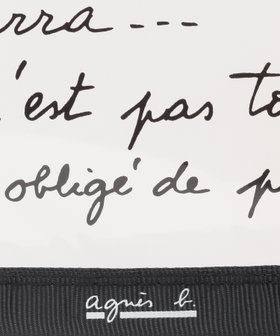 rra ---
'est pas to
obligé de p
agnès b.